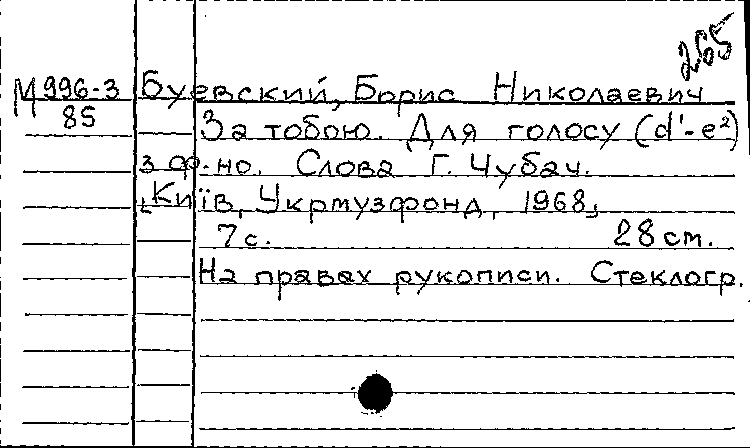 265
М 996-3 Буевский, Борис Николаевич
85
За тобою. Для голосу (d'-e²)
з ф.-но. Слова Г. Чубач.
[Київ, Укрмузфонд, 1968]
7 с. 28 cm.
На правах рукописи. Стеклогр.